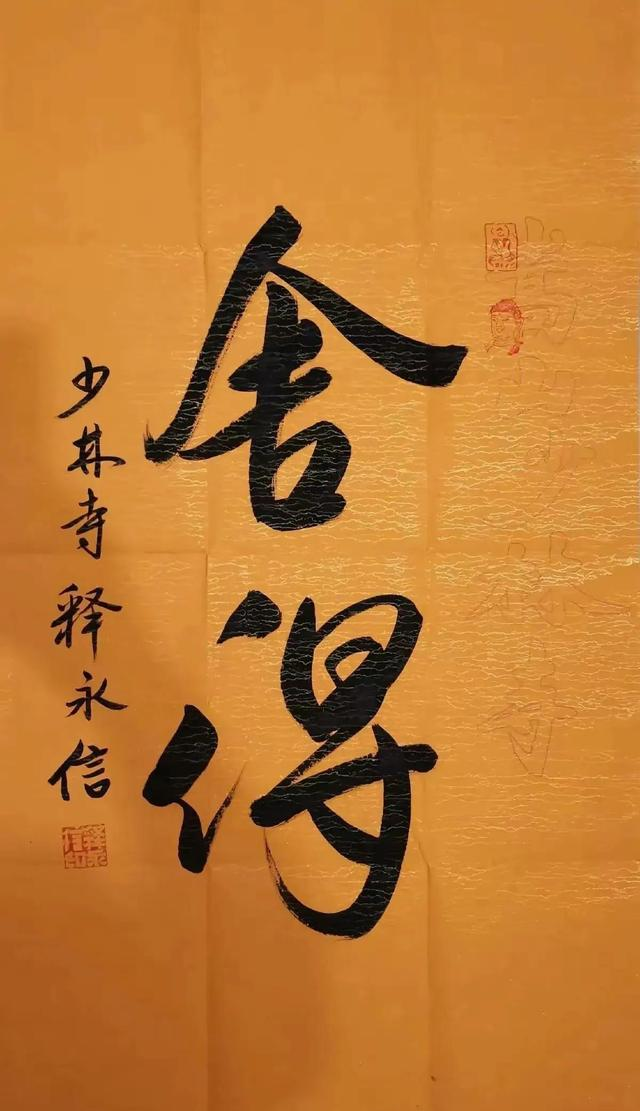 嵩山少林寺
舍得
少林寺释永信
释永信印